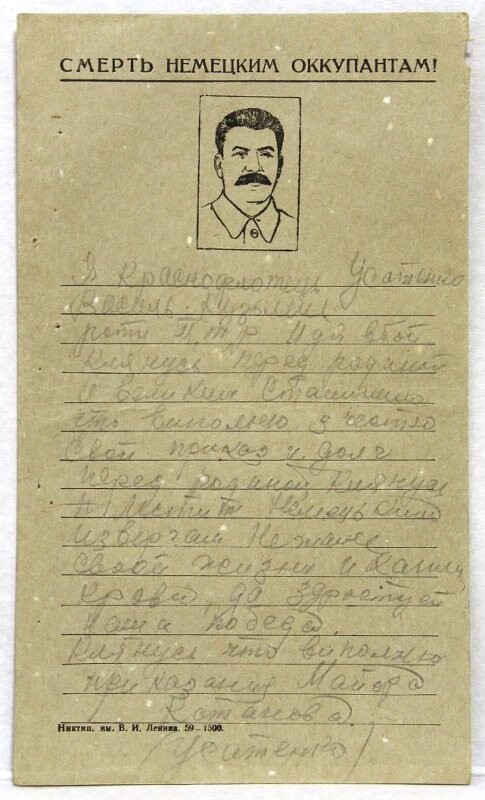 СМЕРТЬ НЕМЕЦКИМ ОККУПАНТАМ!
Я Краснофлотець Усатенко
Василь Кузьмич
роти П.Т.Р. Идя вбой
Клянусь перед родиной
и великим Сталиним
что виполню з честю
свой приказ и долг
перед родиной Клянусь
мстит Немецьким
извергам Не жалея
своей жизни и
крови, да здраствуей
Наша победа.
Клянусь что виполню
приказания Майора
Котанова.
(Усатенко)
Никтип. им. В. И. Ленина. 59–1500.